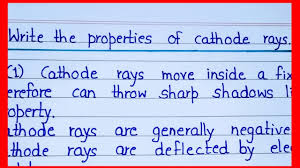 Write the properties of cathode rays.
(1) Cathode rays move inside a fix
erefore can throw sharp shadows li
operty.
thode rays are generally negative
thode rays are deflected by ele